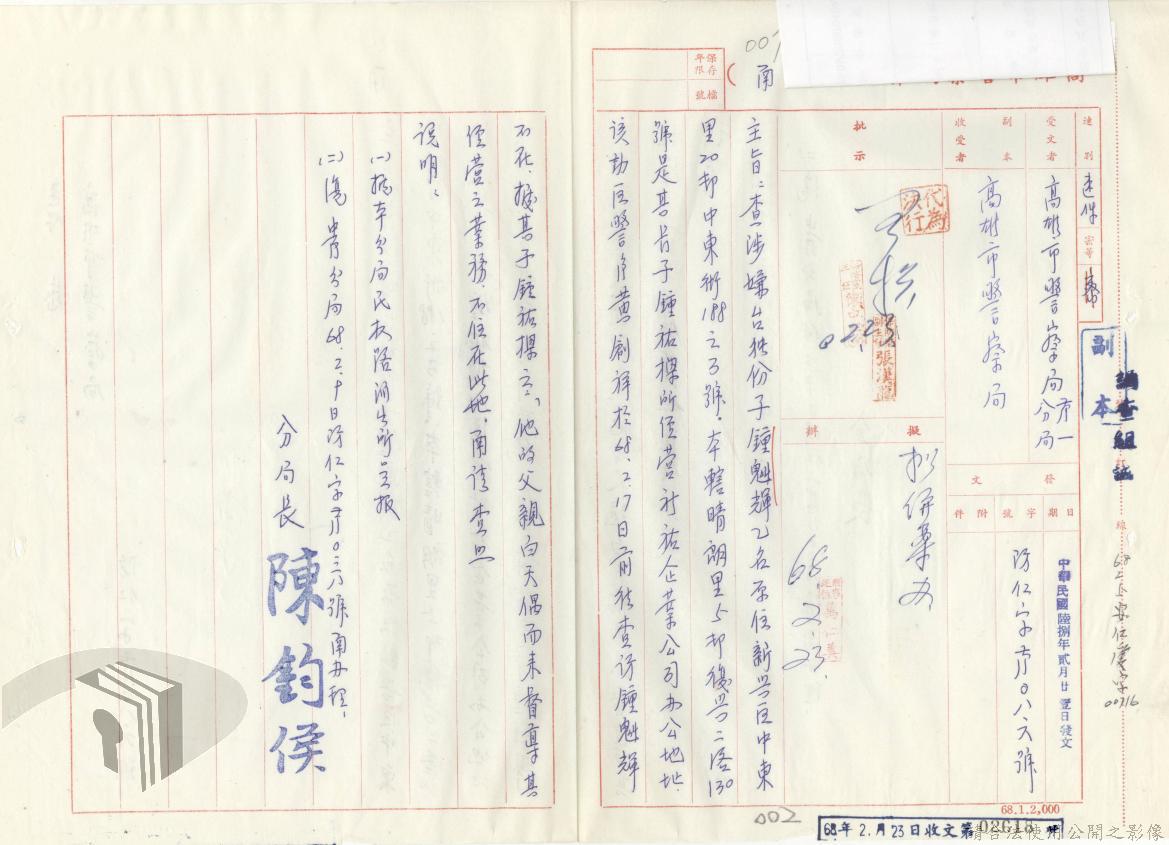 保存年限
檔號
函
速別
速件
密等
受文者
高雄市警察局
副本收受者
高雄市警察局
副本
批示
代為決行
張漢
擬辦
擬併案办
68.2.23
發文
日期
字號
附件
中華民國陸捌年貳月廿 日發文
防仁字第〇八六號
線
主旨：查涉嫌台独份子鍾魁輝乙名原住新兴区中東
里20邻中東街188之3號。本轄晴朗里5邻復兴二路130
號是其長子鍾祐標所經营 祐企業公司办公地址
該勤区警員黃創祥於68.2.17日前往查访鍾魁輝
不在，據其子鍾祐標云，他的父親白天偶而來督導其
經营之業務，不住在此地，函請查照
說明：
㈠據本分局民权路派出所呈报
㈡ 分局68.2. 日防仁字第〇三六號函办理，
分局長
陳鈞侯
68.1.2,000
002
68年2.月23日收文第
請合法使用公開之影像